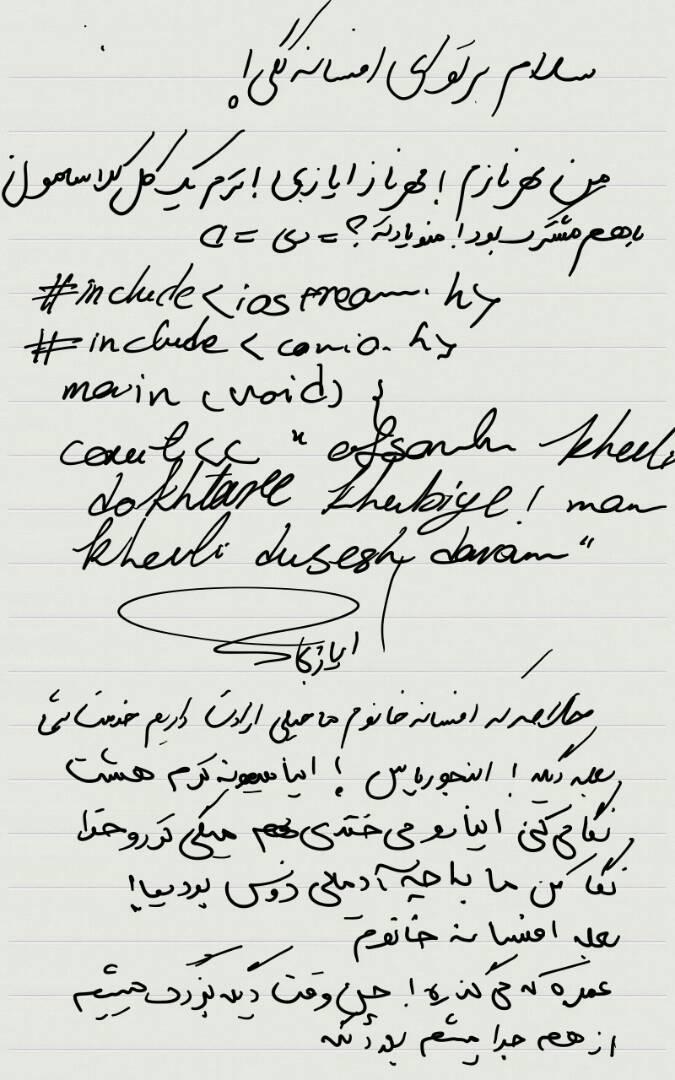 سلام بر تو ای افسانه گلی!
من بهنازم! بهناز ایازی! ترم یک کل کلاسامون
باهم مشترک بود! منو یادته؟ = ی = a
#include<iostream.h>
#include<conio.h>
main (void) {
cout<< " afsaneh kheili
dokhtaree khubiye! man
kheili dusesh daram"
ایازی
خلاصه که افسانه خانوم ما خیلی ارادت داریم خدمت شما
بعله دیگه! اینجوریاس! اینا میمونه ترم هشت
نگا می کنی اینارو می خندی بهم میگی تورو خدا
نگا کن ما با چه آدمای بودیما!
بعله افسانه خانوم
عمره که می گذره! چن وقت دیگه بزرگ میشیم
از هم جدا میشیم